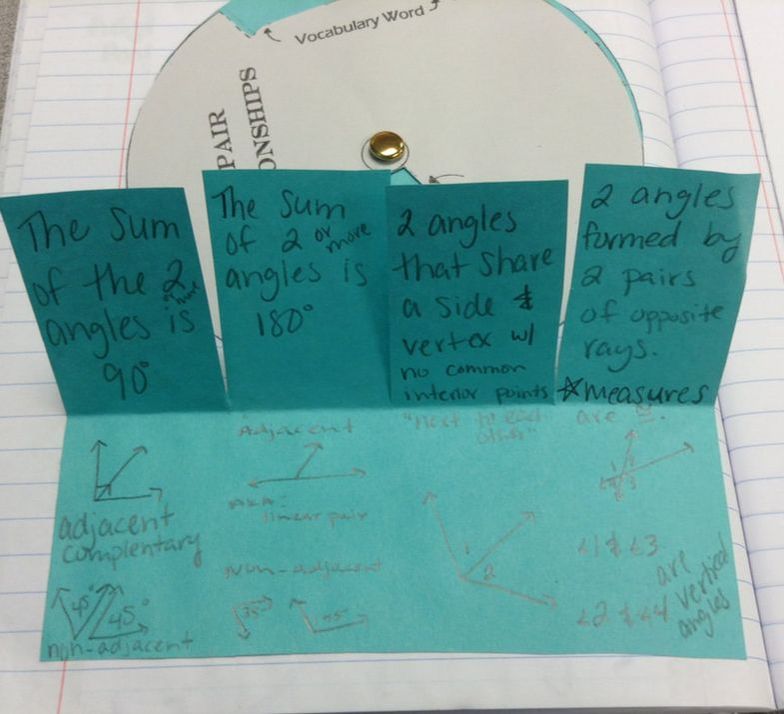 Vocabulary Word
PAIR
ONSHIPS
The Sum
of the 2
or more
angles is
90°
The Sum
of 2 or more
angles is
180°
2 angles
that share
a side &
vertex w/
no common
interior points
2 angles
formed by
2 pairs
of opposite
rays.
☆measures
are ≅.
adjacent
complentary
45° 45°
non-adjacent
Adjacent
AKA:
linear pair
Non-adjacent
35°
"next to each
other"
1
2
1
3
∠1 & ∠3
∠2 & ∠4
are
vertical
angles